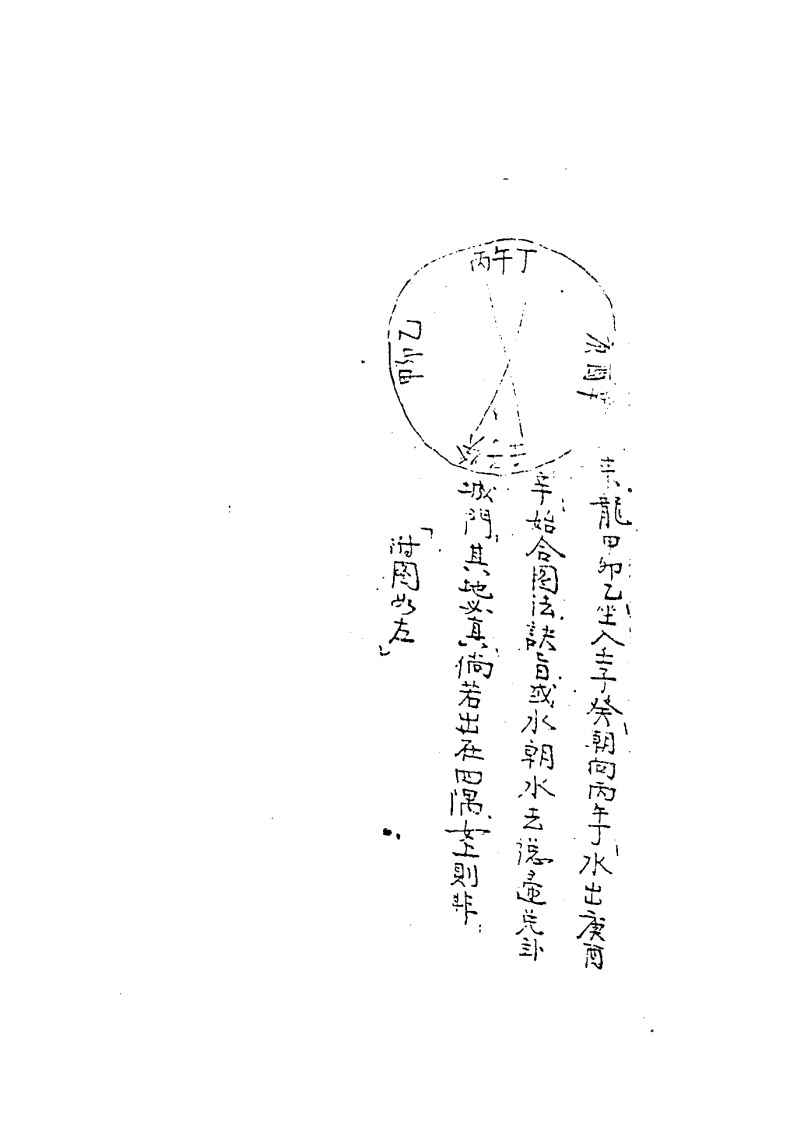 來龍甲卯乙坐入壬子癸朝向丙午丁水出庚酉
辛始合图法訣旨或水朝水去總逢兑卦
城門其地必真倘若出在四隅則非
「附图如左」
丙午丁
庚酉辛
乙卯甲
癸子壬